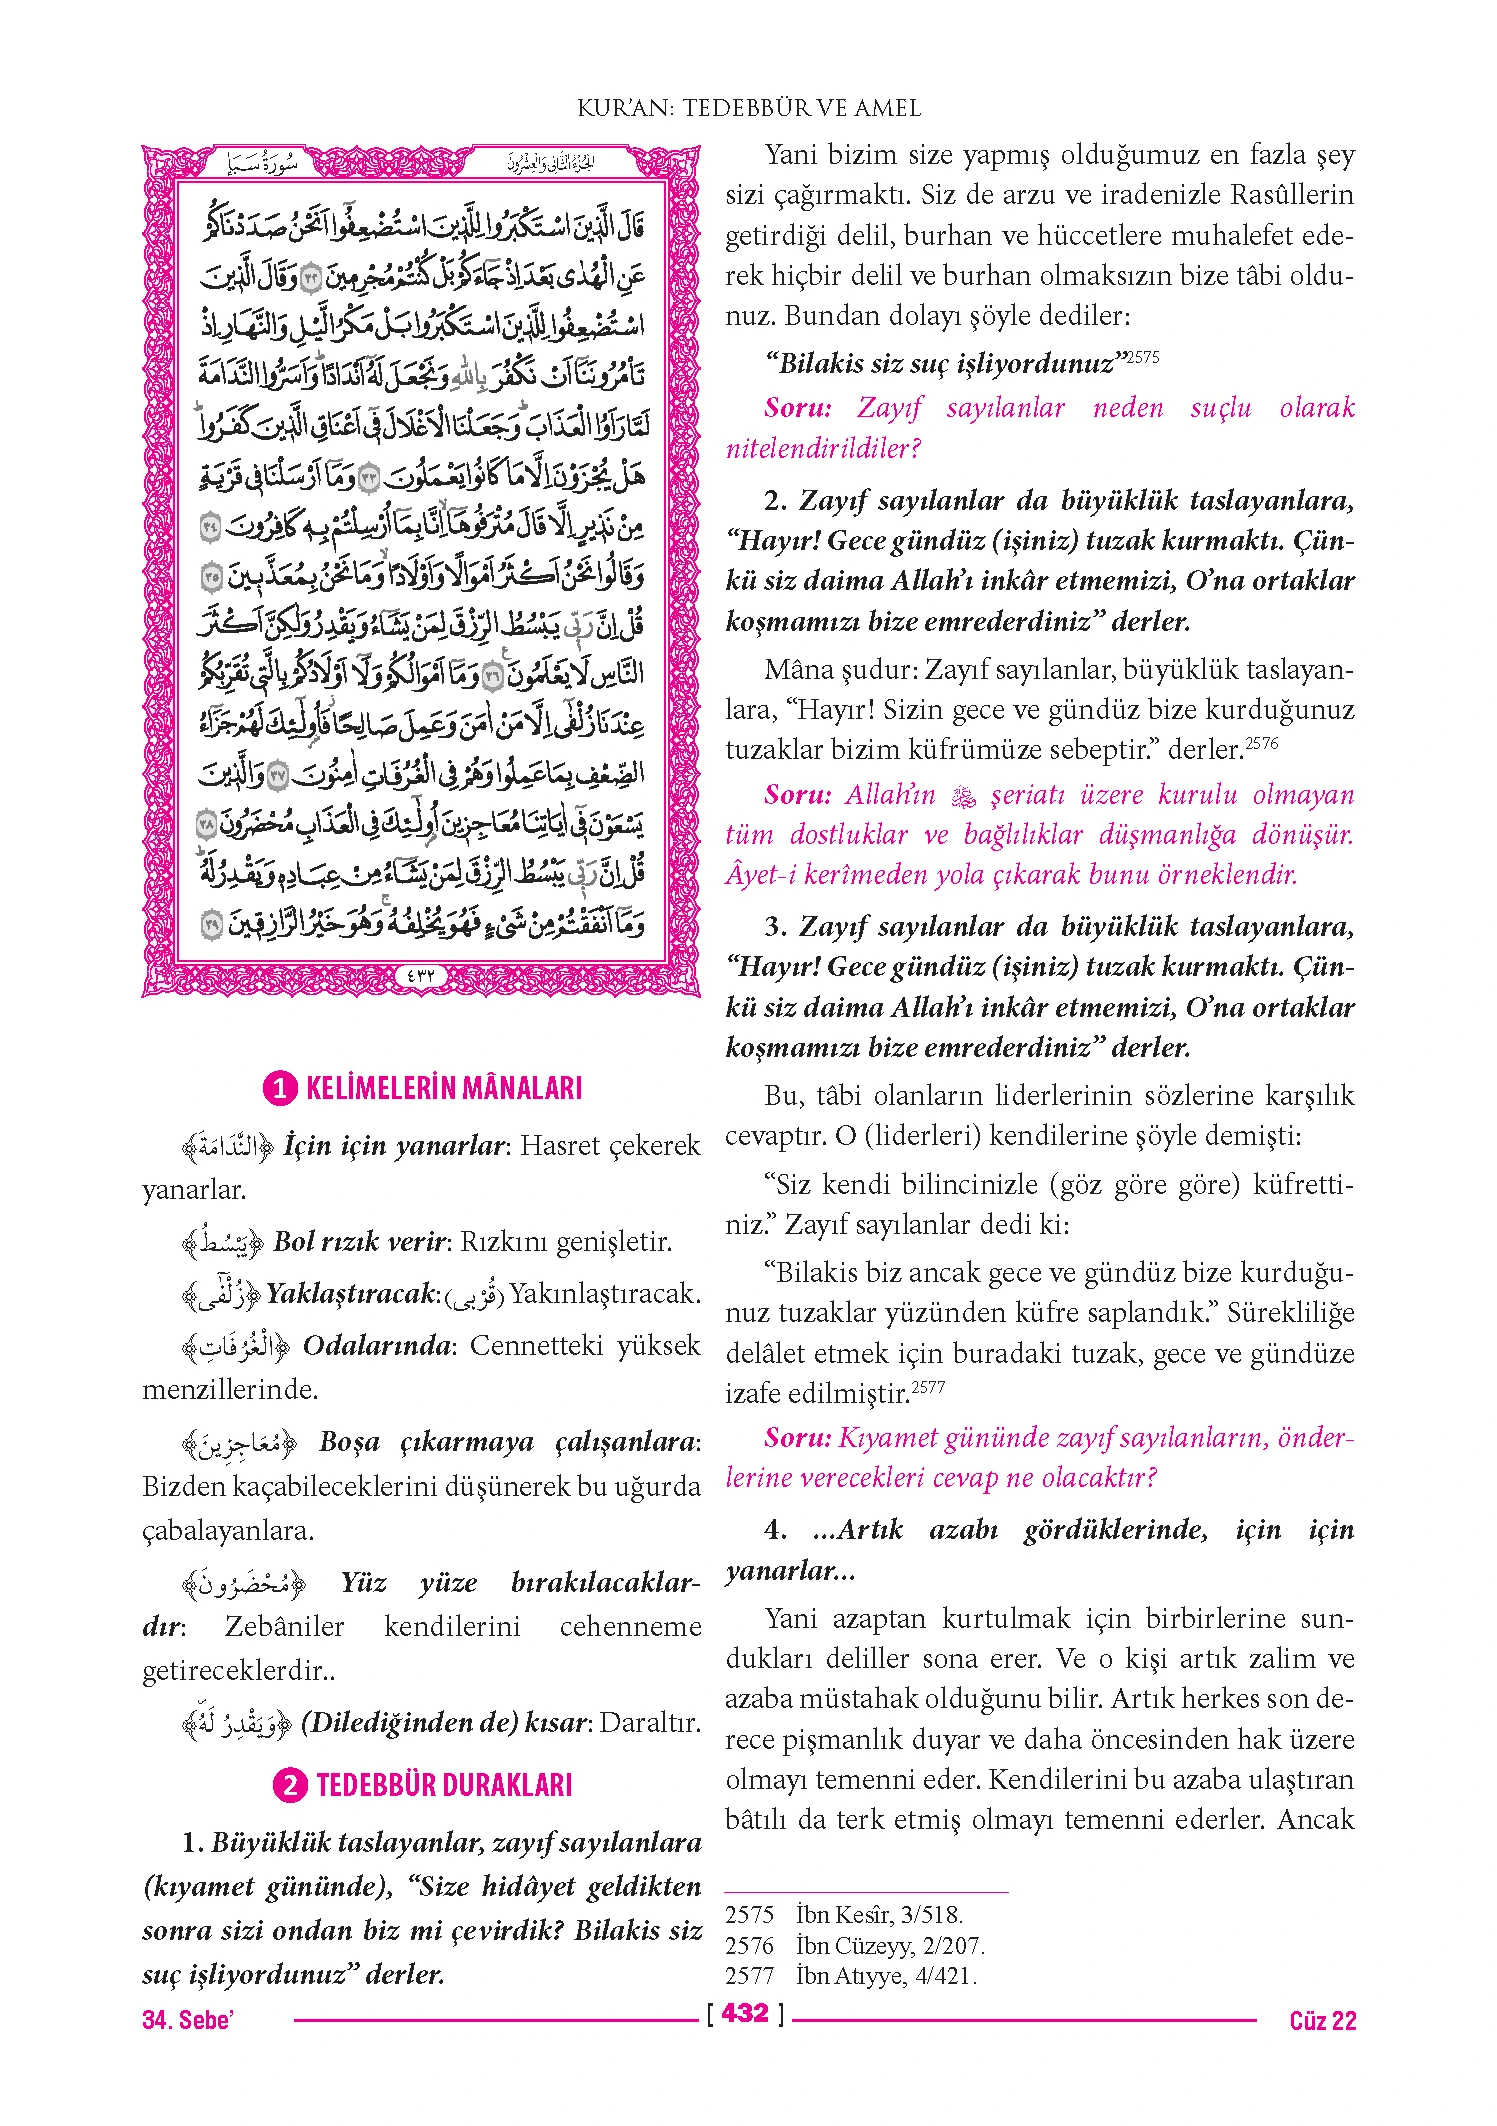 KUR’AN: TEDEBBÜR VE AMEL
سُورَةُ سَبَإٍ
الجُزءُ الثَّانِي وَالعِشْرُونَ
قَالَ الَّذٖينَ اسْتَكْبَرُوا لِلَّذٖينَ اسْتُضْعِفُٓوا اَنَحْنُ صَدَدْنَاكُمْ
عَنِ الْهُدٰى بَعْدَ اِذْ جَٓاءَكُمْ بَلْ كُنْتُمْ مُجْرِمٖينَ ٣٢ وَقَالَ الَّذٖينَ
اسْتُضْعِفُوا لِلَّذٖينَ اسْتَكْبَرُوا بَلْ مَكْرُ الَّيْلِ وَالنَّهَارِ اِذْ
تَأْمُرُونَنَٓا اَنْ نَكْفُرَ بِاللّٰهِ وَنَجْعَلَ لَهُٓ اَنْدَادًاؕ وَاَسَرُّوا النَّدَامَةَ
لَمَّا رَاَوُا الْعَذَابَؕ وَجَعَلْنَا الْاَغْلَالَ فٖٓي اَعْنَاقِ الَّذٖينَ كَفَرُواؕ
هَلْ يُجْزَوْنَ اِلَّا مَا كَانُوا يَعْمَلُونَ ٣٣ وَمَٓا اَرْسَلْنَا فٖي قَرْيَةٍ
مِنْ نَذٖيرٍ اِلَّا قَالَ مُتْرَفُوهَٓاۙ اِنَّا بِمَٓا اُرْسِلْتُمْ بِهٖ كَافِرُونَ ٣٤
وَقَالُوا نَحْنُ اَكْثَرُ اَمْوَالًا وَاَوْلَادًاۙ وَمَا نَحْنُ بِمُعَذَّبٖينَ ٣٥
قُلْ اِنَّ رَبّٖي يَبْسُطُ الرِّزْقَ لِمَنْ يَشَٓاءُ وَيَقْدِرُ وَلٰكِنَّ اَكْثَرَ
النَّاسِ لَا يَعْلَمُونَ ٣٦ وَمَٓا اَمْوَالُكُمْ وَلَٓا اَوْلَادُكُمْ بِالَّتٖي تُقَرِّبُكُمْ
عِنْدَنَا زُلْفٰٓى اِلَّا مَنْ اٰمَنَ وَعَمِلَ صَالِحًاؗ فَاُولٰٓئِكَ لَهُمْ جَزَٓاءُ
الضِّعْفِ بِمَا عَمِلُوا وَهُمْ فِي الْغُرُفَاتِ اٰمِنُونَ ٣٧ وَالَّذٖينَ
يَسْعَوْنَ فٖٓي اٰيَاتِنَا مُعَاجِزٖينَ اُولٰٓئِكَ فِي الْعَذَابِ مُحْضَرُونَ ٣٨
قُلْ اِنَّ رَبّٖي يَبْسُطُ الرِّزْقَ لِمَنْ يَشَٓاءُ مِنْ عِبَادِهٖ وَيَقْدِرُ لَهُؕ
وَمَٓا اَنْفَقْتُمْ مِنْ شَيْءٍ فَهُوَ يُخْلِفُهُۚ وَهُوَ خَيْرُ الرَّازِقٖينَ ٣٩
٤٣٢
1 KELİMELERİN MÂNALARI
﴿النَّدَامَةَ﴾ İçin için yanarlar: Hasret çekerek
yanarlar.
﴿يَبْسُطُ﴾ Bol rızık verir: Rızkını genişletir.
﴿زُلْفٰٓى﴾ Yaklaştıracak: (قُرْبى) Yakınlaştıracak.
﴿الْغُرُفَاتِ﴾ Odalarında: Cennetteki yüksek
menzillerinde.
﴿مُعَاجِزِينَ﴾ Boşa çıkarmaya çalışanlara:
Bizden kaçabileceklerini düşünerek bu uğurda
çabalayanlara.
﴿مُحْضَرُونَ﴾ Yüz yüze bırakılacaklar-
dır: Zebâniler kendilerini cehenneme
getireceklerdir..
﴿وَيَقْدِرُ لَهُ﴾ (Dilediğinden de) kısar: Daraltır.
2 TEDEBBÜR DURAKLARI
1. Büyüklük taslayanlar, zayıf sayılanlara
(kıyamet gününde), “Size hidâyet geldikten
sonra sizi ondan biz mi çevirdik? Bilakis siz
suç işliyordunuz” derler.
Yani bizim size yapmış olduğumuz en fazla şey
sizi çağırmaktı. Siz de arzu ve iradenizle Rasûllerin
getirdiği delil, burhan ve hüccetlere muhalefet ede-
rek hiçbir delil ve burhan olmaksızın bize tâbi oldu-
nuz. Bundan dolayı şöyle dediler:
“Bilakis siz suç işliyordunuz”2575
Soru: Zayıf sayılanlar neden suçlu olarak
nitelendirildiler?
2. Zayıf sayılanlar da büyüklük taslayanlara,
“Hayır! Gece gündüz (işiniz) tuzak kurmaktı. Çün-
kü siz daima Allah’ı inkâr etmemizi, O’na ortaklar
koşmamızı bize emrederdiniz” derler.
Mâna şudur: Zayıf sayılanlar, büyüklük taslayan-
lara, “Hayır! Sizin gece ve gündüz bize kurduğunuz
tuzaklar bizim küfrümüze sebeptir.” derler.2576
Soru: Allah’ın ﷻ şeriatı üzere kurulu olmayan
tüm dostluklar ve bağlılıklar düşmanlığa dönüşür.
Âyet-i kerîmeden yola çıkarak bunu örneklendir.
3. Zayıf sayılanlar da büyüklük taslayanlara,
“Hayır! Gece gündüz (işiniz) tuzak kurmaktı. Çün-
kü siz daima Allah’ı inkâr etmemizi, O’na ortaklar
koşmamızı bize emrederdiniz” derler.
Bu, tâbi olanların liderlerinin sözlerine karşılık
cevaptır. O (liderleri) kendilerine şöyle demişti:
“Siz kendi bilincinizle (göz göre göre) küfretti-
niz.” Zayıf sayılanlar dedi ki:
“Bilakis biz ancak gece ve gündüz bize kurduğu-
nuz tuzaklar yüzünden küfre saplandık.” Sürekliliğe
delâlet etmek için buradaki tuzak, gece ve gündüze
izafe edilmiştir.2577
Soru: Kıyamet gününde zayıf sayılanların, önder-
lerine verecekleri cevap ne olacaktır?
4. ...Artık azabı gördüklerinde, için için
yanarlar...
Yani azaptan kurtulmak için birbirlerine sun-
dukları deliller sona erer. Ve o kişi artık zalim ve
azaba müstahak olduğunu bilir. Artık herkes son de-
rece pişmanlık duyar ve daha öncesinden hak üzere
olmayı temenni eder. Kendilerini bu azaba ulaştıran
bâtılı da terk etmiş olmayı temenni ederler. Ancak
2575 İbn Kesîr, 3/518.
2576 İbn Cüzeyy, 2/207.
2577 İbn Atıyye, 4/421.
34. Sebe’
[ 432 ]
Cüz 22